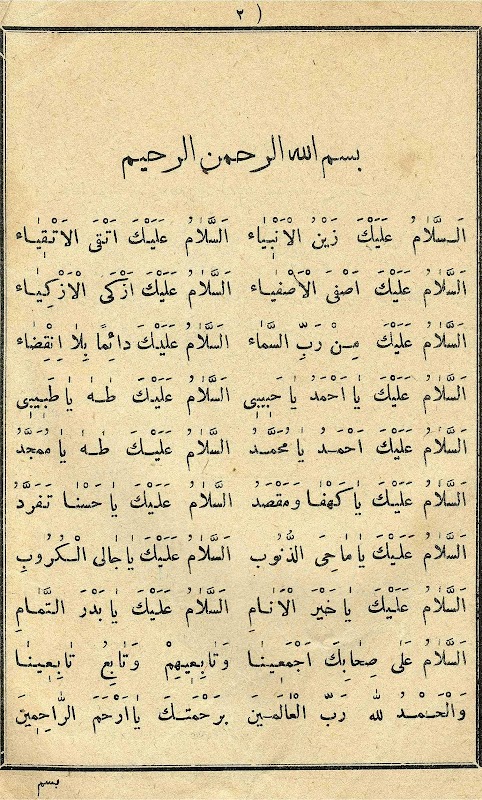 ( ٢
بسم الله الرحمن الرحيم
اَلسَّلَامُ عَلَيْكَ زَيْنُ الْاَنْبِيَاء اَلسَّلَامُ عَلَيْكَ اَتْقَى الْاَتْقِيَاء
اَلسَّلَامُ عَلَيْكَ اَصْفَى الْاَصْفِيَاء اَلسَّلَامُ عَلَيْكَ اَزْكَى الْاَزْكِيَاء
اَلسَّلَامُ عَلَيْكَ مِنْ رَبِّ السَّمَاء اَلسَّلَامُ عَلَيْكَ دَائِمًا بِلَا اِنْقِضَاء
اَلسَّلَامُ عَلَيْكَ يَا اَحْمَدُ يَا حَبِيبِى اَلسَّلَامُ عَلَيْكَ طٰهٰ يَا طَبِيبِى
اَلسَّلَامُ عَلَيْكَ اَحْمَدُ يَا مُحَمَّدُ اَلسَّلَامُ عَلَيْكَ طٰهٰ يَا مُمَجَّدُ
اَلسَّلَامُ عَلَيْكَ يَا كَهْفَا وَمَقْصَدُ اَلسَّلَامُ عَلَيْكَ يَا حَسْنَا تَفَرَّدُ
اَلسَّلَامُ عَلَيْكَ يَا مَاحِىَ الذُّنُوبِ اَلسَّلَامُ عَلَيْكَ يَا جَالِى الْكُرُوبِ
اَلسَّلَامُ عَلَيْكَ يَا خَيْرَ الْاَنَامِ اَلسَّلَامُ عَلَيْكَ يَا بَدْرَ التَّمَامِ
اَلسَّلَامُ عَلَى صِحَابِكَ اَجْمَعِينَا وَتَابِعِيهِمْ وَتَابِعُ تَابِعِينَا
وَالْحَمْدُ لِلّٰهِ رَبِّ الْعَالَمِينَ بِرَحْمَتِكَ يَا اَرْحَمَ الرَّاحِمِينَ
بسم